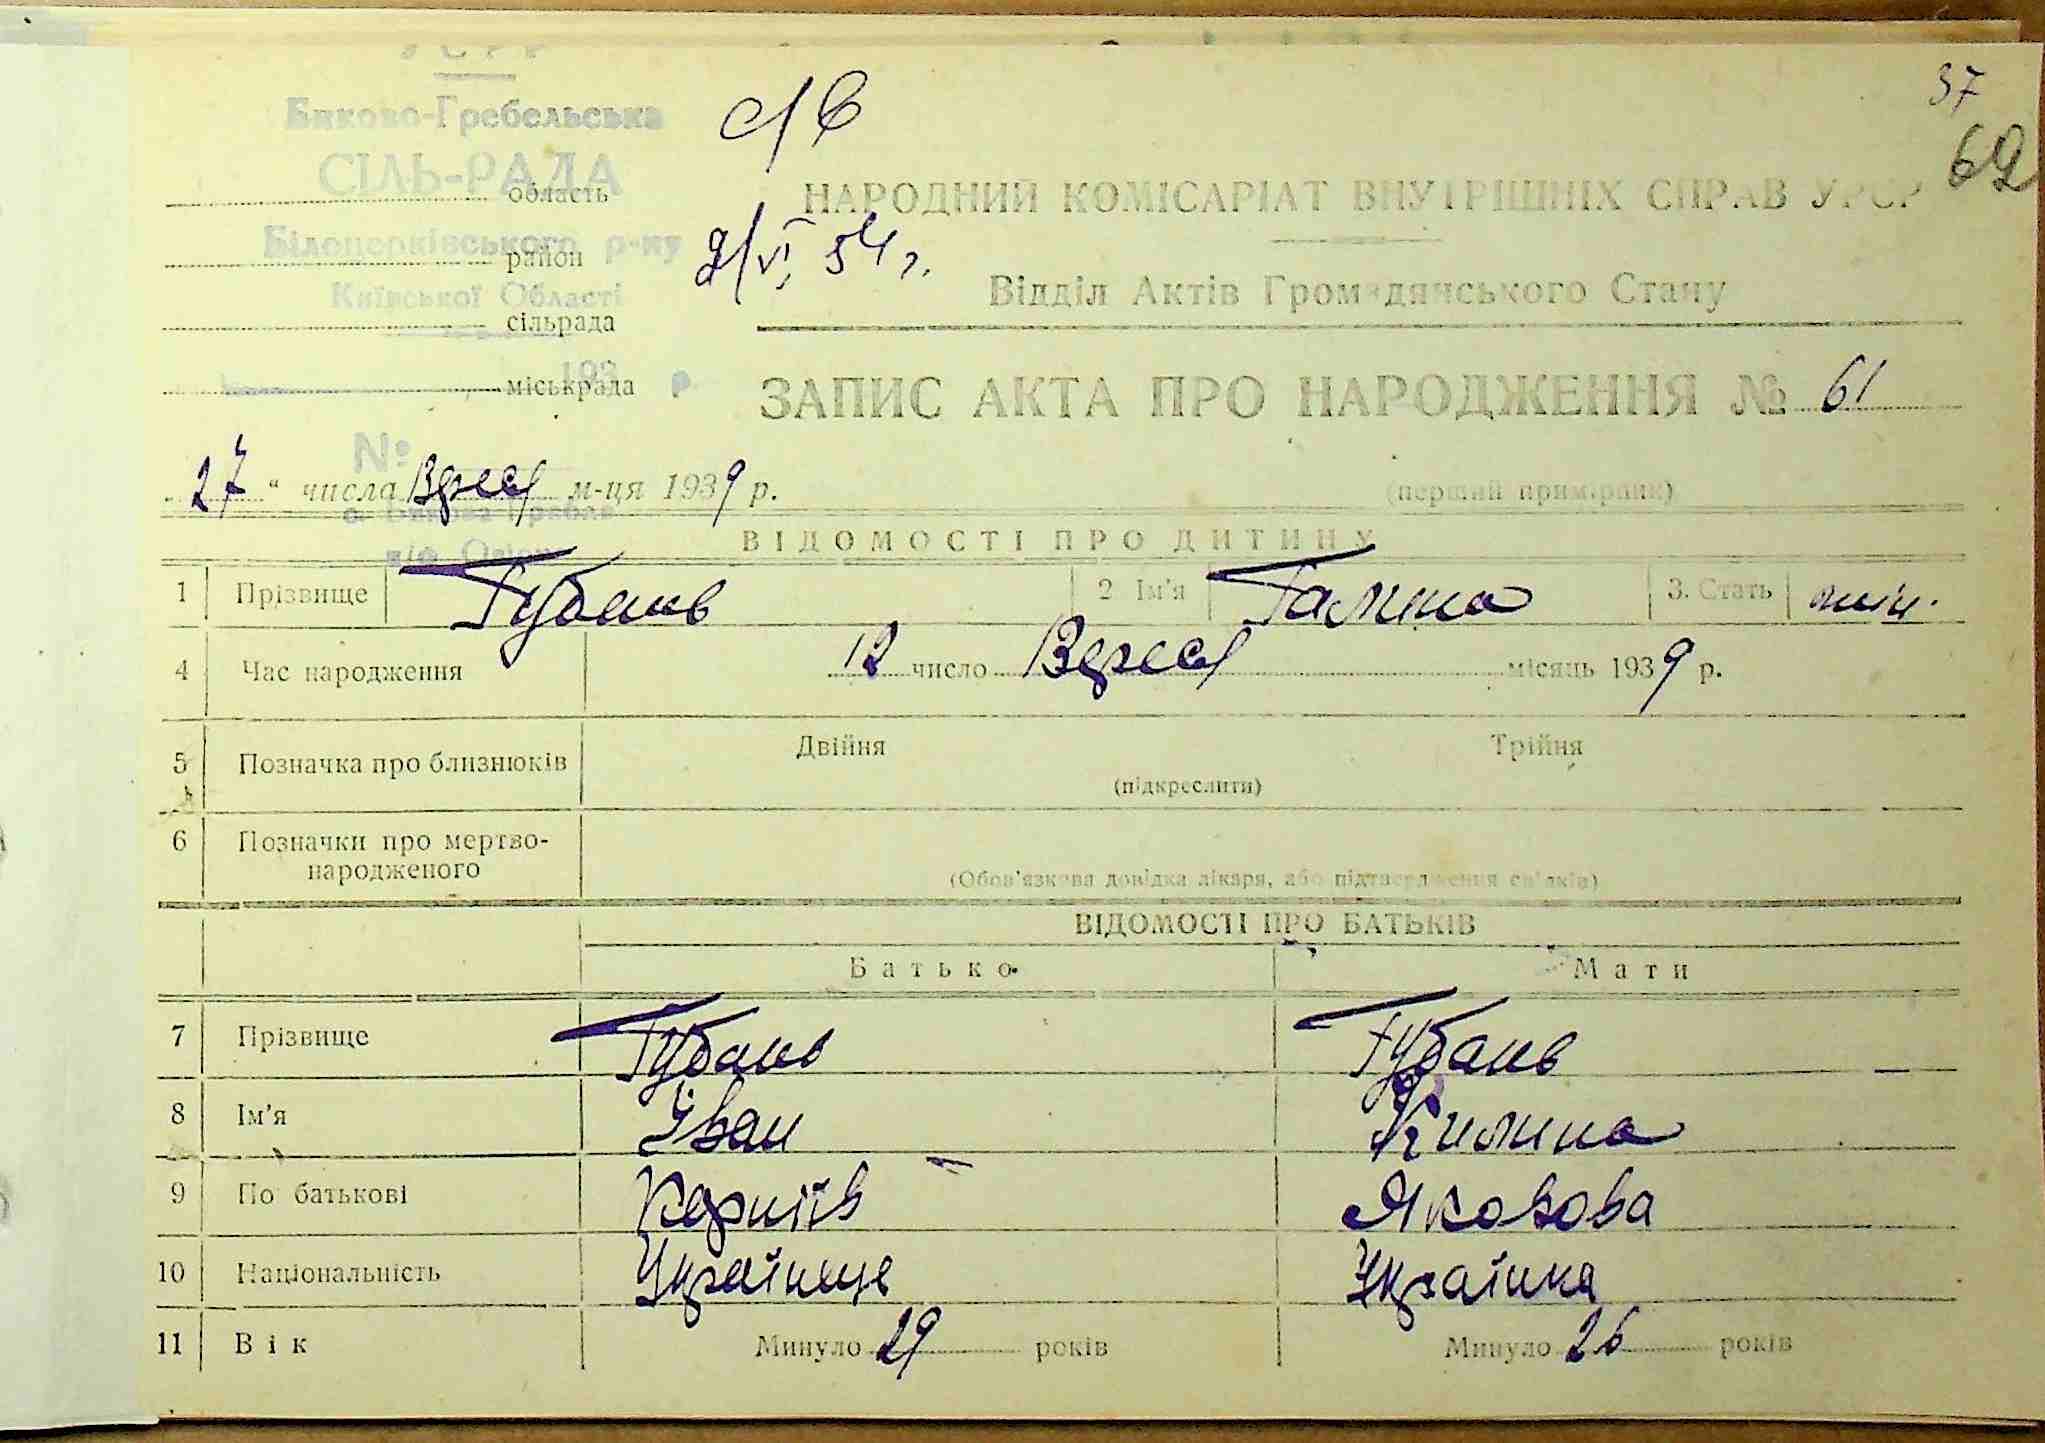 УСРР
37
62
Биково-Гребельська
СІЛЬ-РАДА
область
Білоцерківського р-ну
район
Київської Області
сільрада
193 р
міськрада
№
2/VI 54 г.
НАРОДНИЙ КОМІСАРІАТ ВНУТРІШНІХ СПРАВ УРСР
Відділ Актів Громадянського Стану
ЗАПИС АКТА ПРО НАРОДЖЕННЯ № 61
„27“ числа Верес м-ця 1939 р.
(перший примірник)
с. Бикова Гребля
ВІДОМОСТІ ПРО ДИТИНУ
1 Прізвище Губань 2 Ім'я Галина 3. Стать жін.
4 Час народження 12 число Верес місяць 1939 р.
5 Позначка про близнюків Двійня Трійня
(підкреслити)
6 Позначки про мертво-
народженого
(Обов'язкова довідка лікаря, або підтвердження свідків)
ВІДОМОСТІ ПРО БАТЬКІВ
Батько Мати
7 Прізвище Губань Губань
8 Ім'я Іван Килина
9 По батькові Корніїв Яковова
10 Національність Українець Українка
11 Вік Минуло 29 років Минуло 26 років